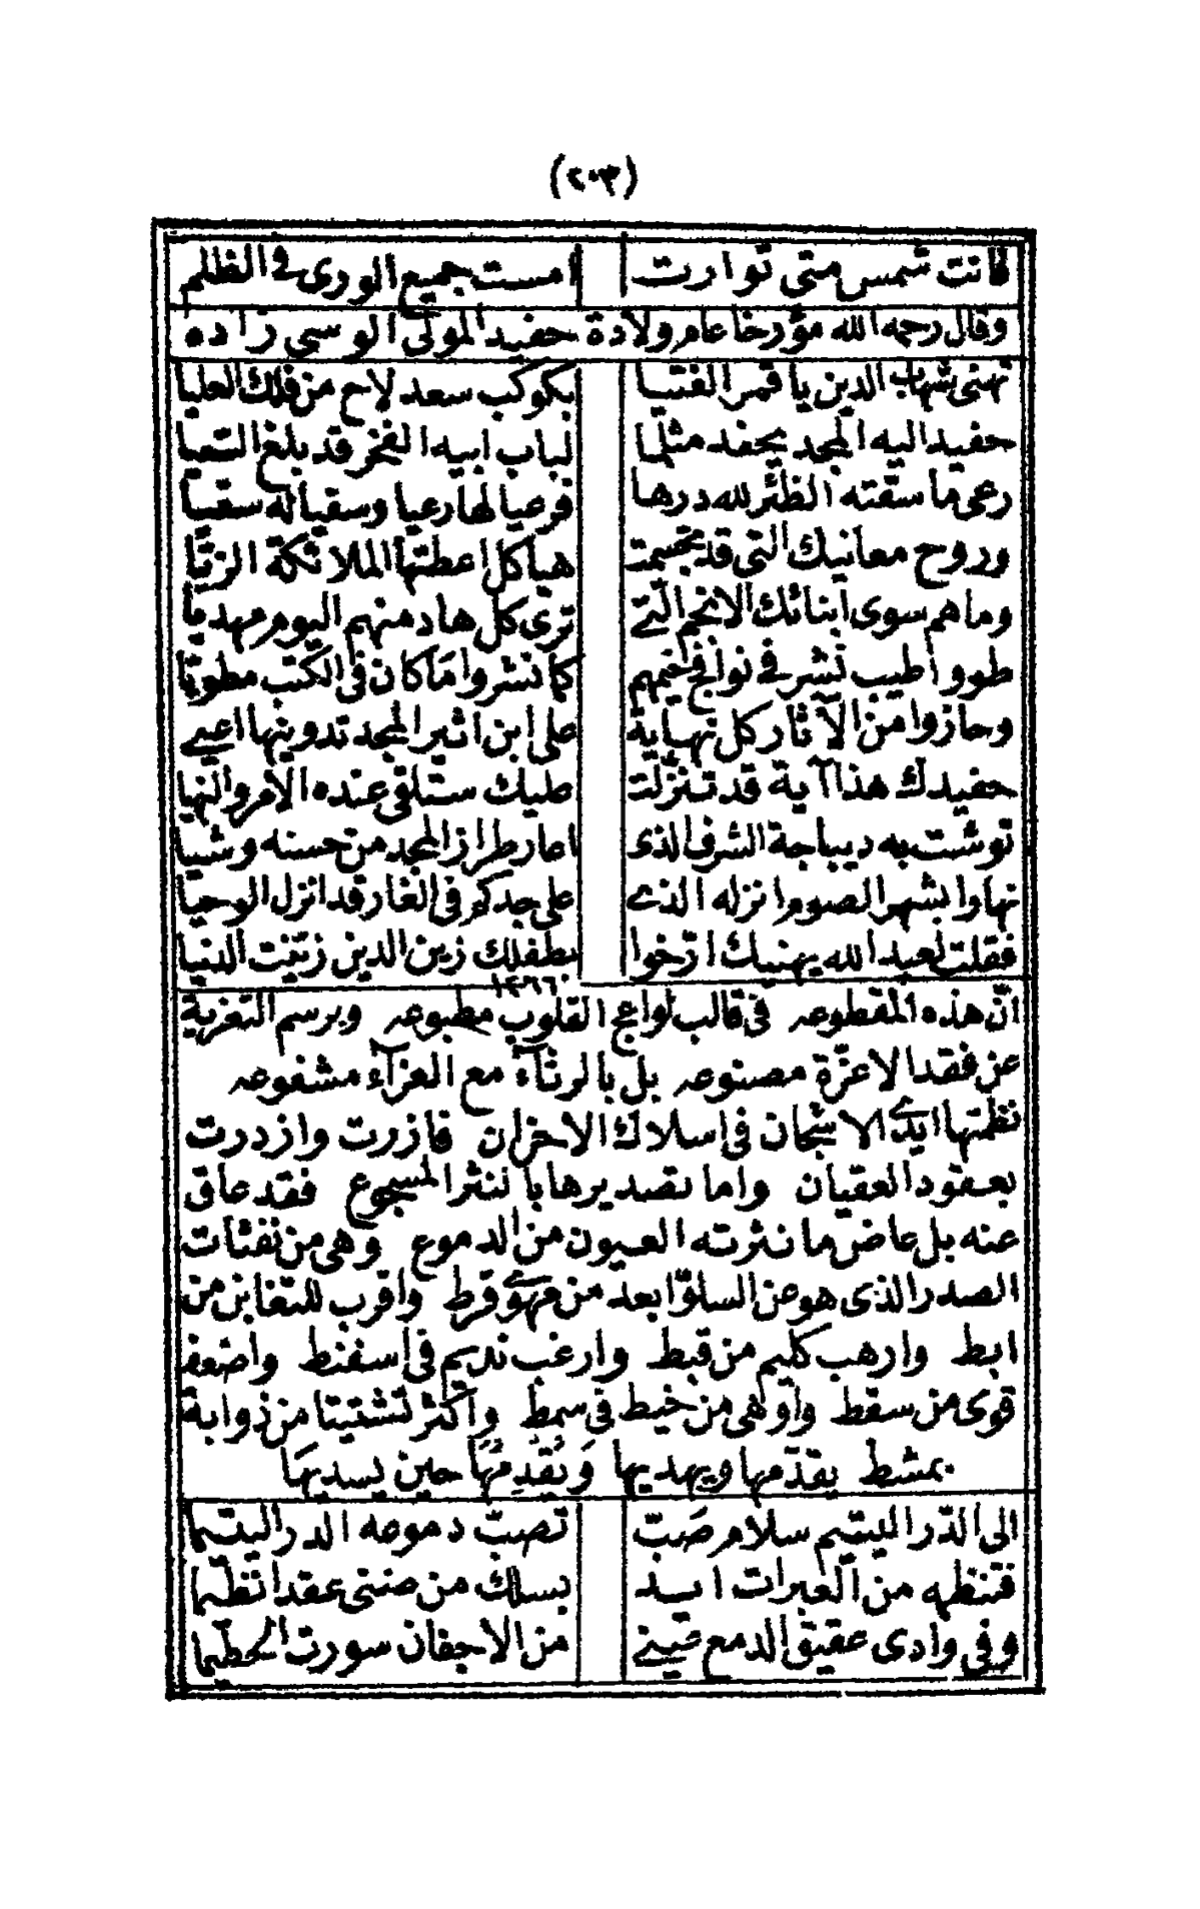 (٢٠٣)
فانت شمس متى توارت امست جميع الورى فى الظلم
وقال رحمه الله مؤرخا عام ولادة حفيد المولى الوسى زاده
تهنى شهاب الدين يا قمر الفتيا بكوكب سعد لاح من فلك العليا
حفيد اليه المجد يحفد مثلما لباب ابيه الفخر قد بلغ السعيا
رعى ما سقته الظئر لله درها فرعيا لها رعيا وسقيا له سقيا
وروح معانيك التى قد تجسمت هياكل اعطتها الملائكة الزيا
وما هم سوى ابنائك الانجم التے ترى كل هاد منهم اليوم مهديا
طووا طيب نشر فى نوافج خيمهم كما نشروا ما كان فى الكتب مطويا
وحازوا من الآثار كل نهاية على ابن اثير المجد تدوينها اعيے
حفيدك هذا آية قد تنزلت عليك ستلقى عنده الامر والنهيا
توشت به ديباجة الشرف الذى اعار طراز المجد من حسنه وشيا
تهاوا بشهر الصوم انزله الذے على جدكم فى الغار قد انزل الوحيا
فقلت لعبد الله يهنيك ارخوا بطفلك زين الدين زينت الدنيا
١٢٦٦
ان هذه المقطوعه فى قالب لواعج القلوب مطبوعه وبرسم التعزية
عن فقد الاعزة مصنوعه بل بالرثآء مع العزآء مشفوعه
نظمتها ايدے الاشجان فى اسلاك الاحزان فازرت وازدرت
بعقود العقيان واما تصديرها بالنثر المسجوع فقد عاق
عنه بل عاض ما نثرته العيون من الدموع وهى من نفثات
الصدر الذى هو عن السلو ابعد من مهوے قرط واقرب للتغابن من
ابط وارهب كليم من قبط وارغب نديم فى اسفنط واضعف
قوى من سقط واوهى من خيط فى سمط واكثر تشتيتا من ذوابة
بمشط يقدمها ويهديها وَيُقَدِمُهَا حين يسديهَا
الى الدر اليتيم سلام صَبّ تصبّ دموعه الدر اليتيما
فتنظمه من العبرات ايد بسلك من ضنى عقدا نظيما
وفى وادى عقيق الدمع عينے من الاجفان سورت الحطيما